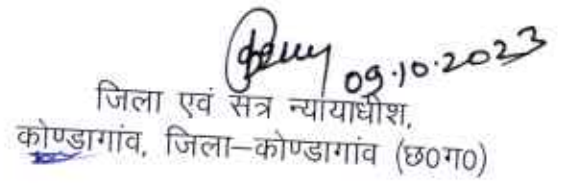 09.10.2023
जिला एवं सत्र न्यायाधीश,
कोण्डागांव, जिला–कोण्डागांव (छ0ग0)